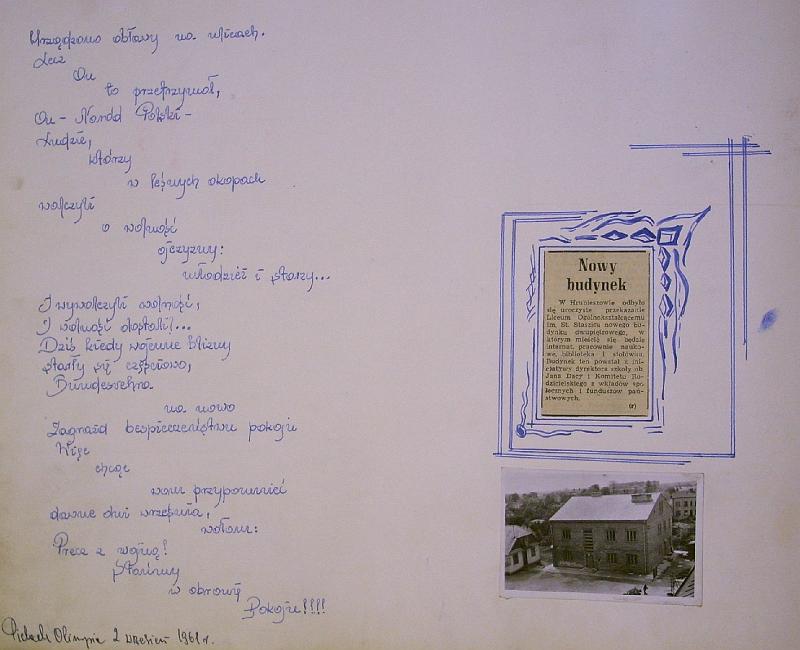 Urządzono obławy na ulicach.
Lecz
On
to przetrzymał,
On - Naród Polski -
Ludzie,
którzy
w leśnych okopach
walczyli
o wolność
ojczyzny:
młodzież i starzy...
I wywalczyli wolność,
I wolności dostali!...
Dziś kiedy wojenne blizny
starły się częściowo,
Bundeswehra
na nowo
Zagraża bezpieczeństwu pokoju
Więc
chcąc
wam przypomnieć
dawne dni września,
wołam:
Precz z wojną!
Stańmy
w obronie
Pokoju!!!!
Olimpia 2 wrzesień 1961 r.
Nowy
budynek
W Hrubieszowie odbyło
się uroczyste przekazanie
Liceum Ogólnokształcącemu
im. St. Staszica nowego bu-
dynku dwupiętrowego, w
którym mieścić się będzie
internat, pracownie nauko-
we, biblioteka i stołówka.
Budynek ten powstał z ini-
cjatywy dyrektora szkoły ob.
Jana Dacy i Komitetu Ro-
dzicielskiego z wkładów spo-
łecznych i funduszów pań-
stwowych.
(r)